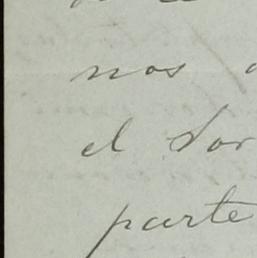 nos
el Sor
parte